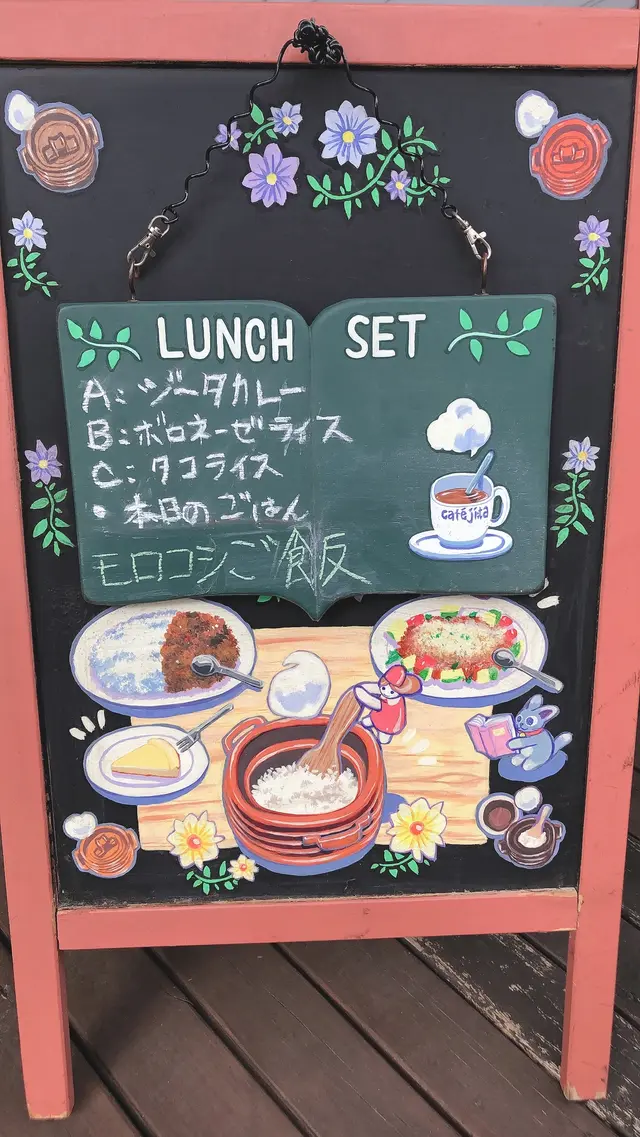 LUNCH SET
A: ジータカレー
B: ボロネーゼライス
C: タコライス
・本日のごはん
モロコシご飯
caféjita